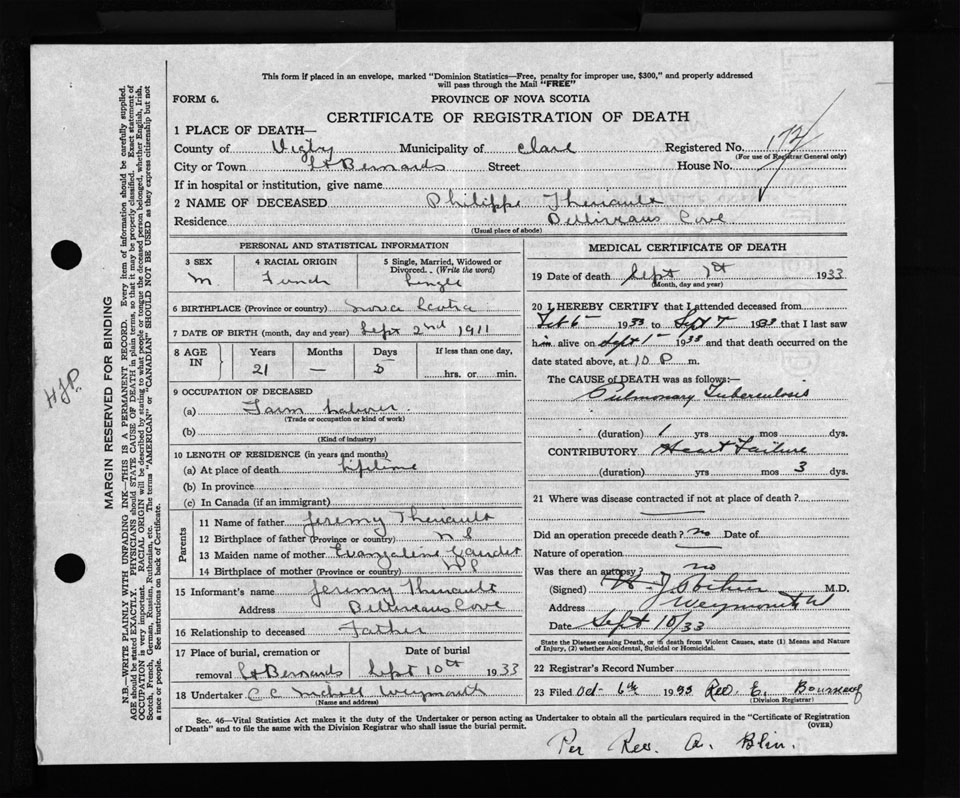 This form if placed in an envelope, marked "Dominion Statistics—Free, penalty for improper use, $300," and properly addressed
will pass through the Mail "FREE"
FORM 6. PROVINCE OF NOVA SCOTIA
CERTIFICATE OF REGISTRATION OF DEATH
1 PLACE OF DEATH—
County of Digby Municipality of Clare Registered No. 172
(For use of Registrar General only)
City or Town St Bernards Street House No.
If in hospital or institution, give name
2 NAME OF DECEASED Philippe Theriault
Residence Belliveaus Cove
(Usual place of abode)
PERSONAL AND STATISTICAL INFORMATION
3 SEX 4 RACIAL ORIGIN 5 Single, Married, Widowed or
Divorced. (Write the word)
M. French Single
6 BIRTHPLACE (Province or country) Nova Scotia
7 DATE OF BIRTH (month, day and year) Sept 2nd 1911
8 AGE IN Years Months Days If less than one day,
21 — 5 hrs. or min.
9 OCCUPATION OF DECEASED
(a) Farm Laborer.
(Trade or occupation or kind of work)
(b)
(Kind of industry)
10 LENGTH OF RESIDENCE (in years and months)
(a) At place of death lifetime
(b) In province
(c) In Canada (if an immigrant)
Parents
11 Name of father Jeremy Theriault
12 Birthplace of father (Province or country) N S
13 Maiden name of mother Evangeline Gaudet
14 Birthplace of mother (Province or country)
15 Informant's name Jeremy Theriault
Address Belliveaus Cove
16 Relationship to deceased Father
17 Place of burial, cremation or Date of burial
removal St Bernards Sept 10th 1933
18 Undertaker C C Weymouth
(Name and address)
MEDICAL CERTIFICATE OF DEATH
19 Date of death Sept 7th 1933
(Month, day and year)
20 I HEREBY CERTIFY that I attended deceased from
1933 to Sept 7 1933 that I last saw
him alive on Sept 1st 1933 and that death occurred on the
date stated above, at 10 P m.
The CAUSE of DEATH was as follows:—
Pulmonary Tuberculosis
(duration) 1 yrs mos dys.
CONTRIBUTORY Heart Failure
(duration) yrs mos 3 dys.
21 Where was disease contracted if not at place of death?
Did an operation precede death? no Date of
Nature of operation
Was there an autopsy? no
(Signed) M.D.
Address Weymouth
Date Sept 10/33
State the Disease causing Death, or in death from Violent Causes, state (1) Means and Nature
of Injury, (2) whether Accidental, Suicidal or Homicidal.
22 Registrar's Record Number
23 Filed Oct 6th 1933 Rev. E.
(Division Registrar)
Sec. 46—Vital Statistics Act makes it the duty of the Undertaker or person acting as Undertaker to obtain all the particulars required in the "Certificate of Registration
of Death" and to file the same with the Division Registrar who shall issue the burial permit. (OVER)
Per Rev. A. Blin.
HJP.
MARGIN RESERVED FOR BINDING
N.B.—WRITE PLAINLY WITH UNFADING INK—THIS IS A PERMANENT RECORD. Every item of information should be carefully supplied.
AGE should be stated EXACTLY. PHYSICIANS should STATE CAUSE OF DEATH in plain terms, so that it may be properly classified. Exact statement of
OCCUPATION is very important. RACIAL ORIGIN will be described by stating to what people or tongue the deceased person belonged, whether English, Irish,
Scotch, French, German, Russian, Ruthenian, etc. The terms "AMERICAN" or "CANADIAN" SHOULD NOT BE USED as they express citizenship but not
a race or people. See instructions on back of Certificate.